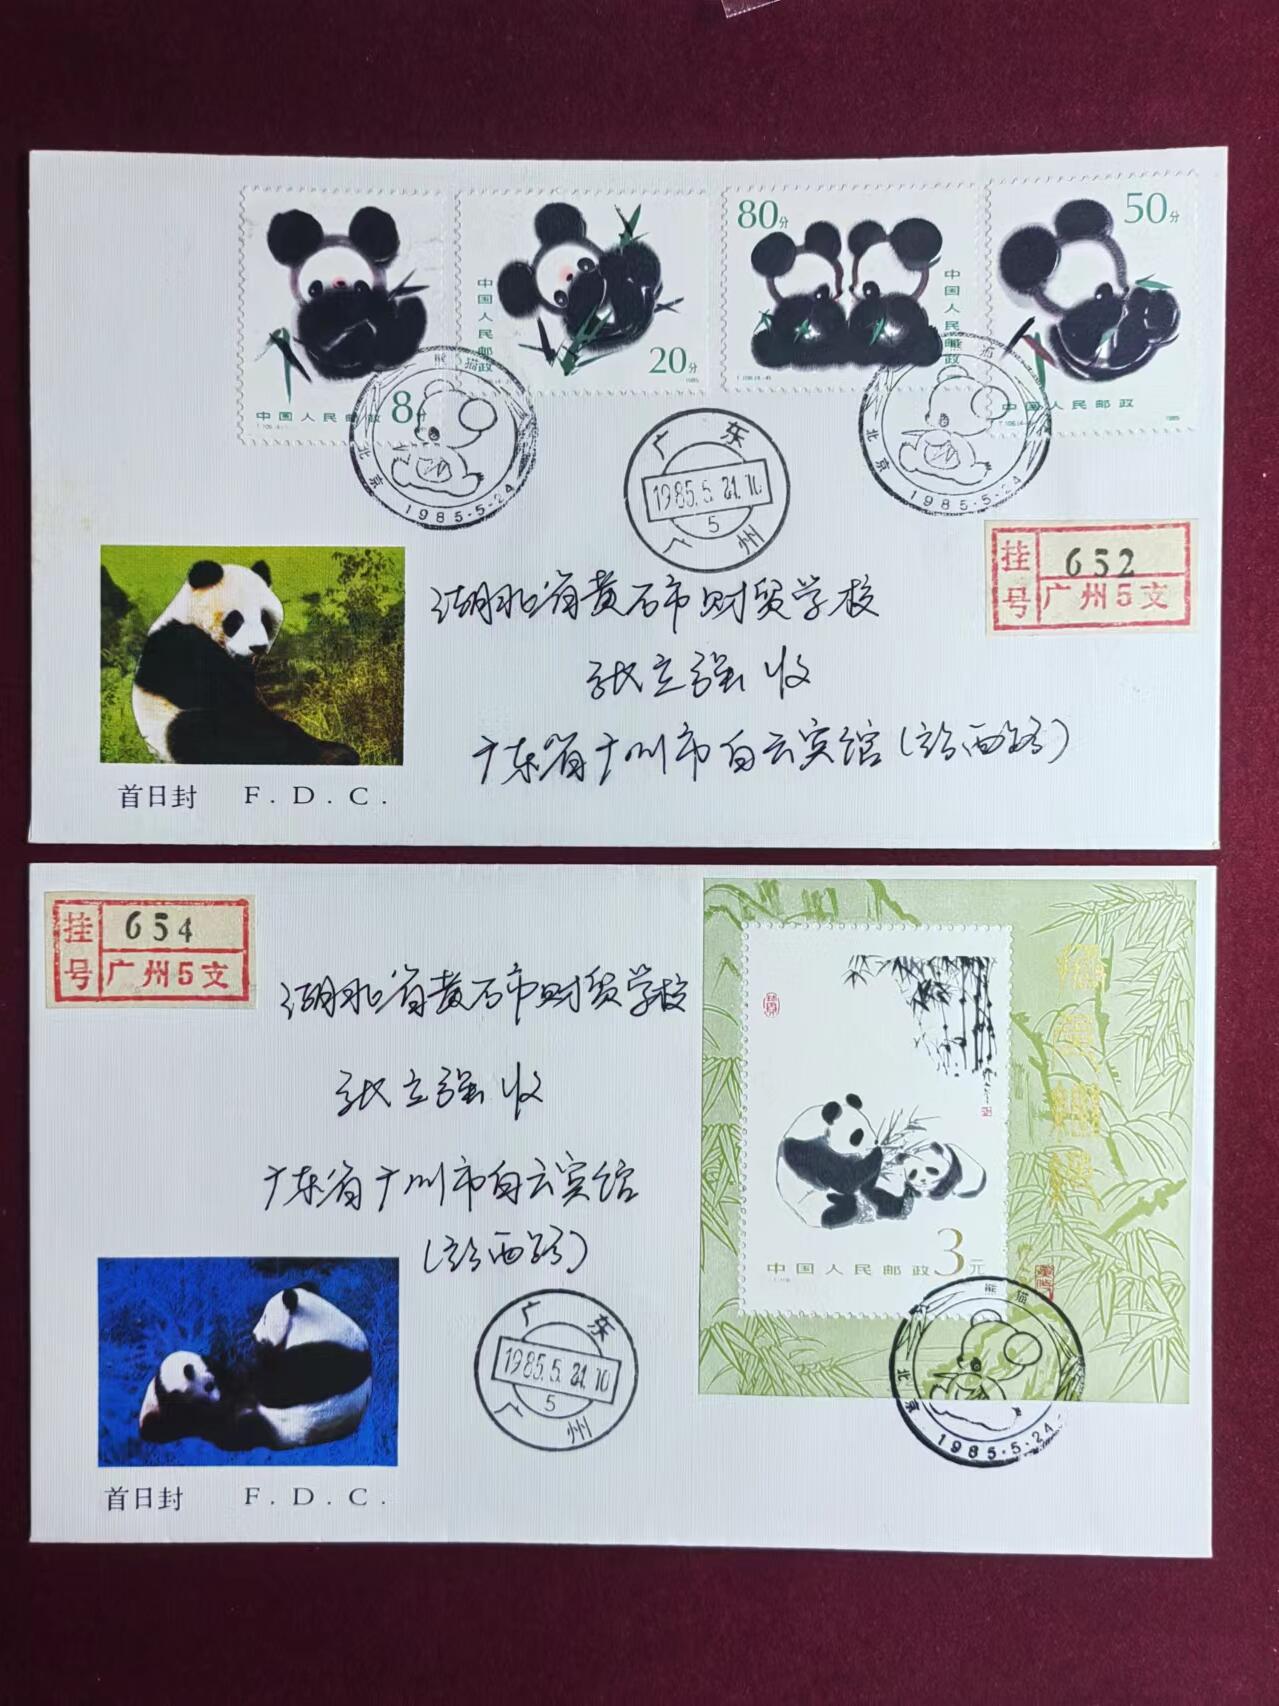 8分
中国人民邮政
T.106.(4-1)
中国人民邮政
20分
1985
80分
中国人民邮政
T.106.(4-4)
50分
中国人民邮政
1985
熊猫
北京
1985.5.24
广东
1985.5.21.10
5
广州
熊猫
北京
1985.5.24
挂号
652
广州5支
湖北省黄石市财贸学校
张立强 收
广东省广州市白云宾馆(环市路)
首日封 F.D.C.
挂号
654
广州5支
湖北省黄石市财贸学校
张立强 收
广东省广州市白云宾馆
首日封 F.D.C.
广东
1985.5.21.10
5
广州
中国人民邮政
3元
熊猫
北京
1985.5.24